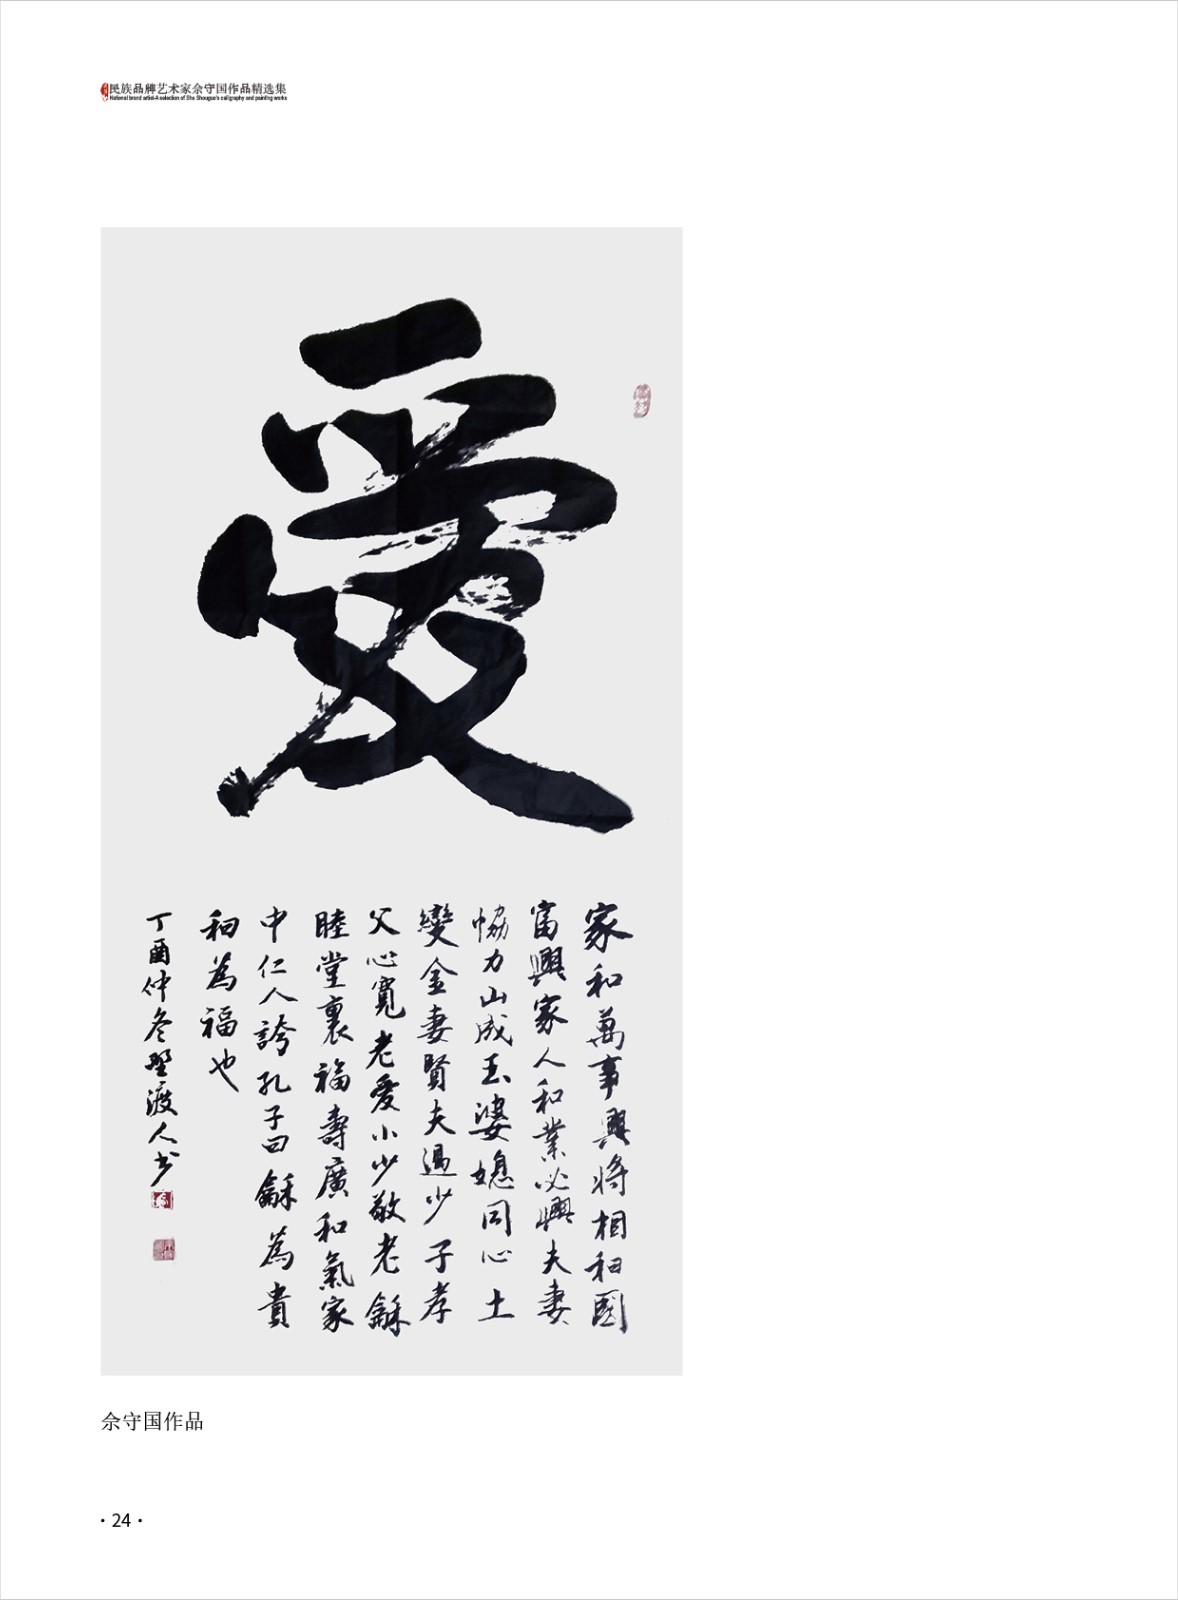 民族品牌艺术家佘守国作品精选集
National brand artist-A selection of She Shouguo's calligraphy and painting works
愛
家和萬事興將相和國
富興家人和業必興夫妻
協力山成玉婆媳同心土
變金妻賢夫過少子孝
父心寬老愛小少敬老龢
睦堂裏福壽廣和氣家
中仁人誇孔子曰龢為貴
和為福也
丁酉仲冬野渡人书
佘守国作品
·24·